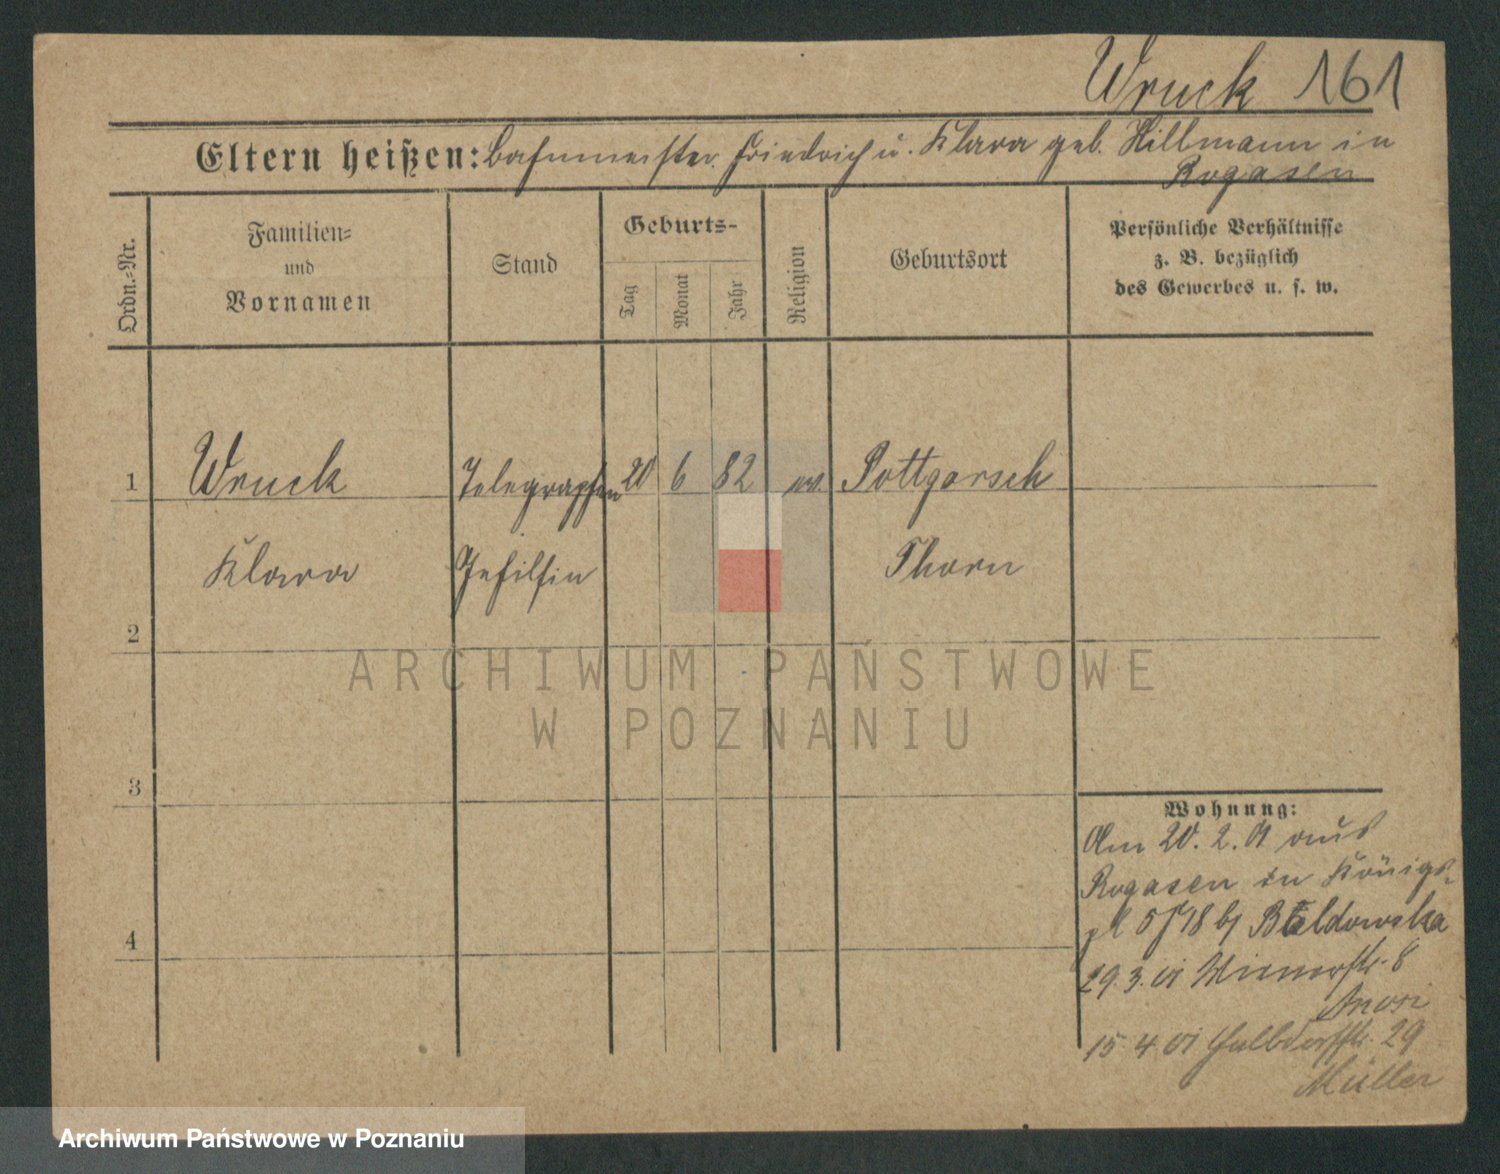 Wruck 161
Eltern heißen: Bahnmeister Friedrich u. Klara geb. Hillmann in
Rogasen
Ordn.-Nr.
Familien-
und
Vornamen
Stand
Geburts-
Tag
Monat
Jahr
Religion
Geburtsort
Persönliche Verhältnisse
z. B. bezüglich
des Gewerbes u. s. w.
1 Wruck Telegraphen 20 6 82 ev. Pottgorsch
Klara Gehilfin Thorn
2
3
4
Wohnung:
Am 20. 2. 01 aus
Rogasen in Königs-
pl 5 18 bj
29. 3. 01 Wienerstr. 8
15. 4. 01 29
Müller
ARCHIWUM PAŃSTWOWE
W POZNANIU
Archiwum Państwowe w Poznaniu